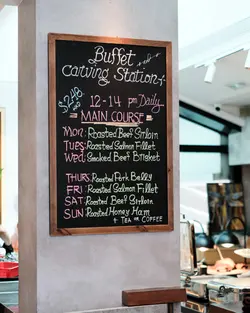 Buffet
carving Station
$248
12-14 pm Daily
MAIN COURSE
MON: Roasted Beef Sirloin
TUES: Roasted Salmon Fillet
WED: Smoked Beef Brisket
THURS: Roasted Pork Belly
FRI: Roasted Salmon Fillet
SAT: Roasted Beef Sirloin
SUN: Roasted Honey Ham
+ TEA OR COFFEE